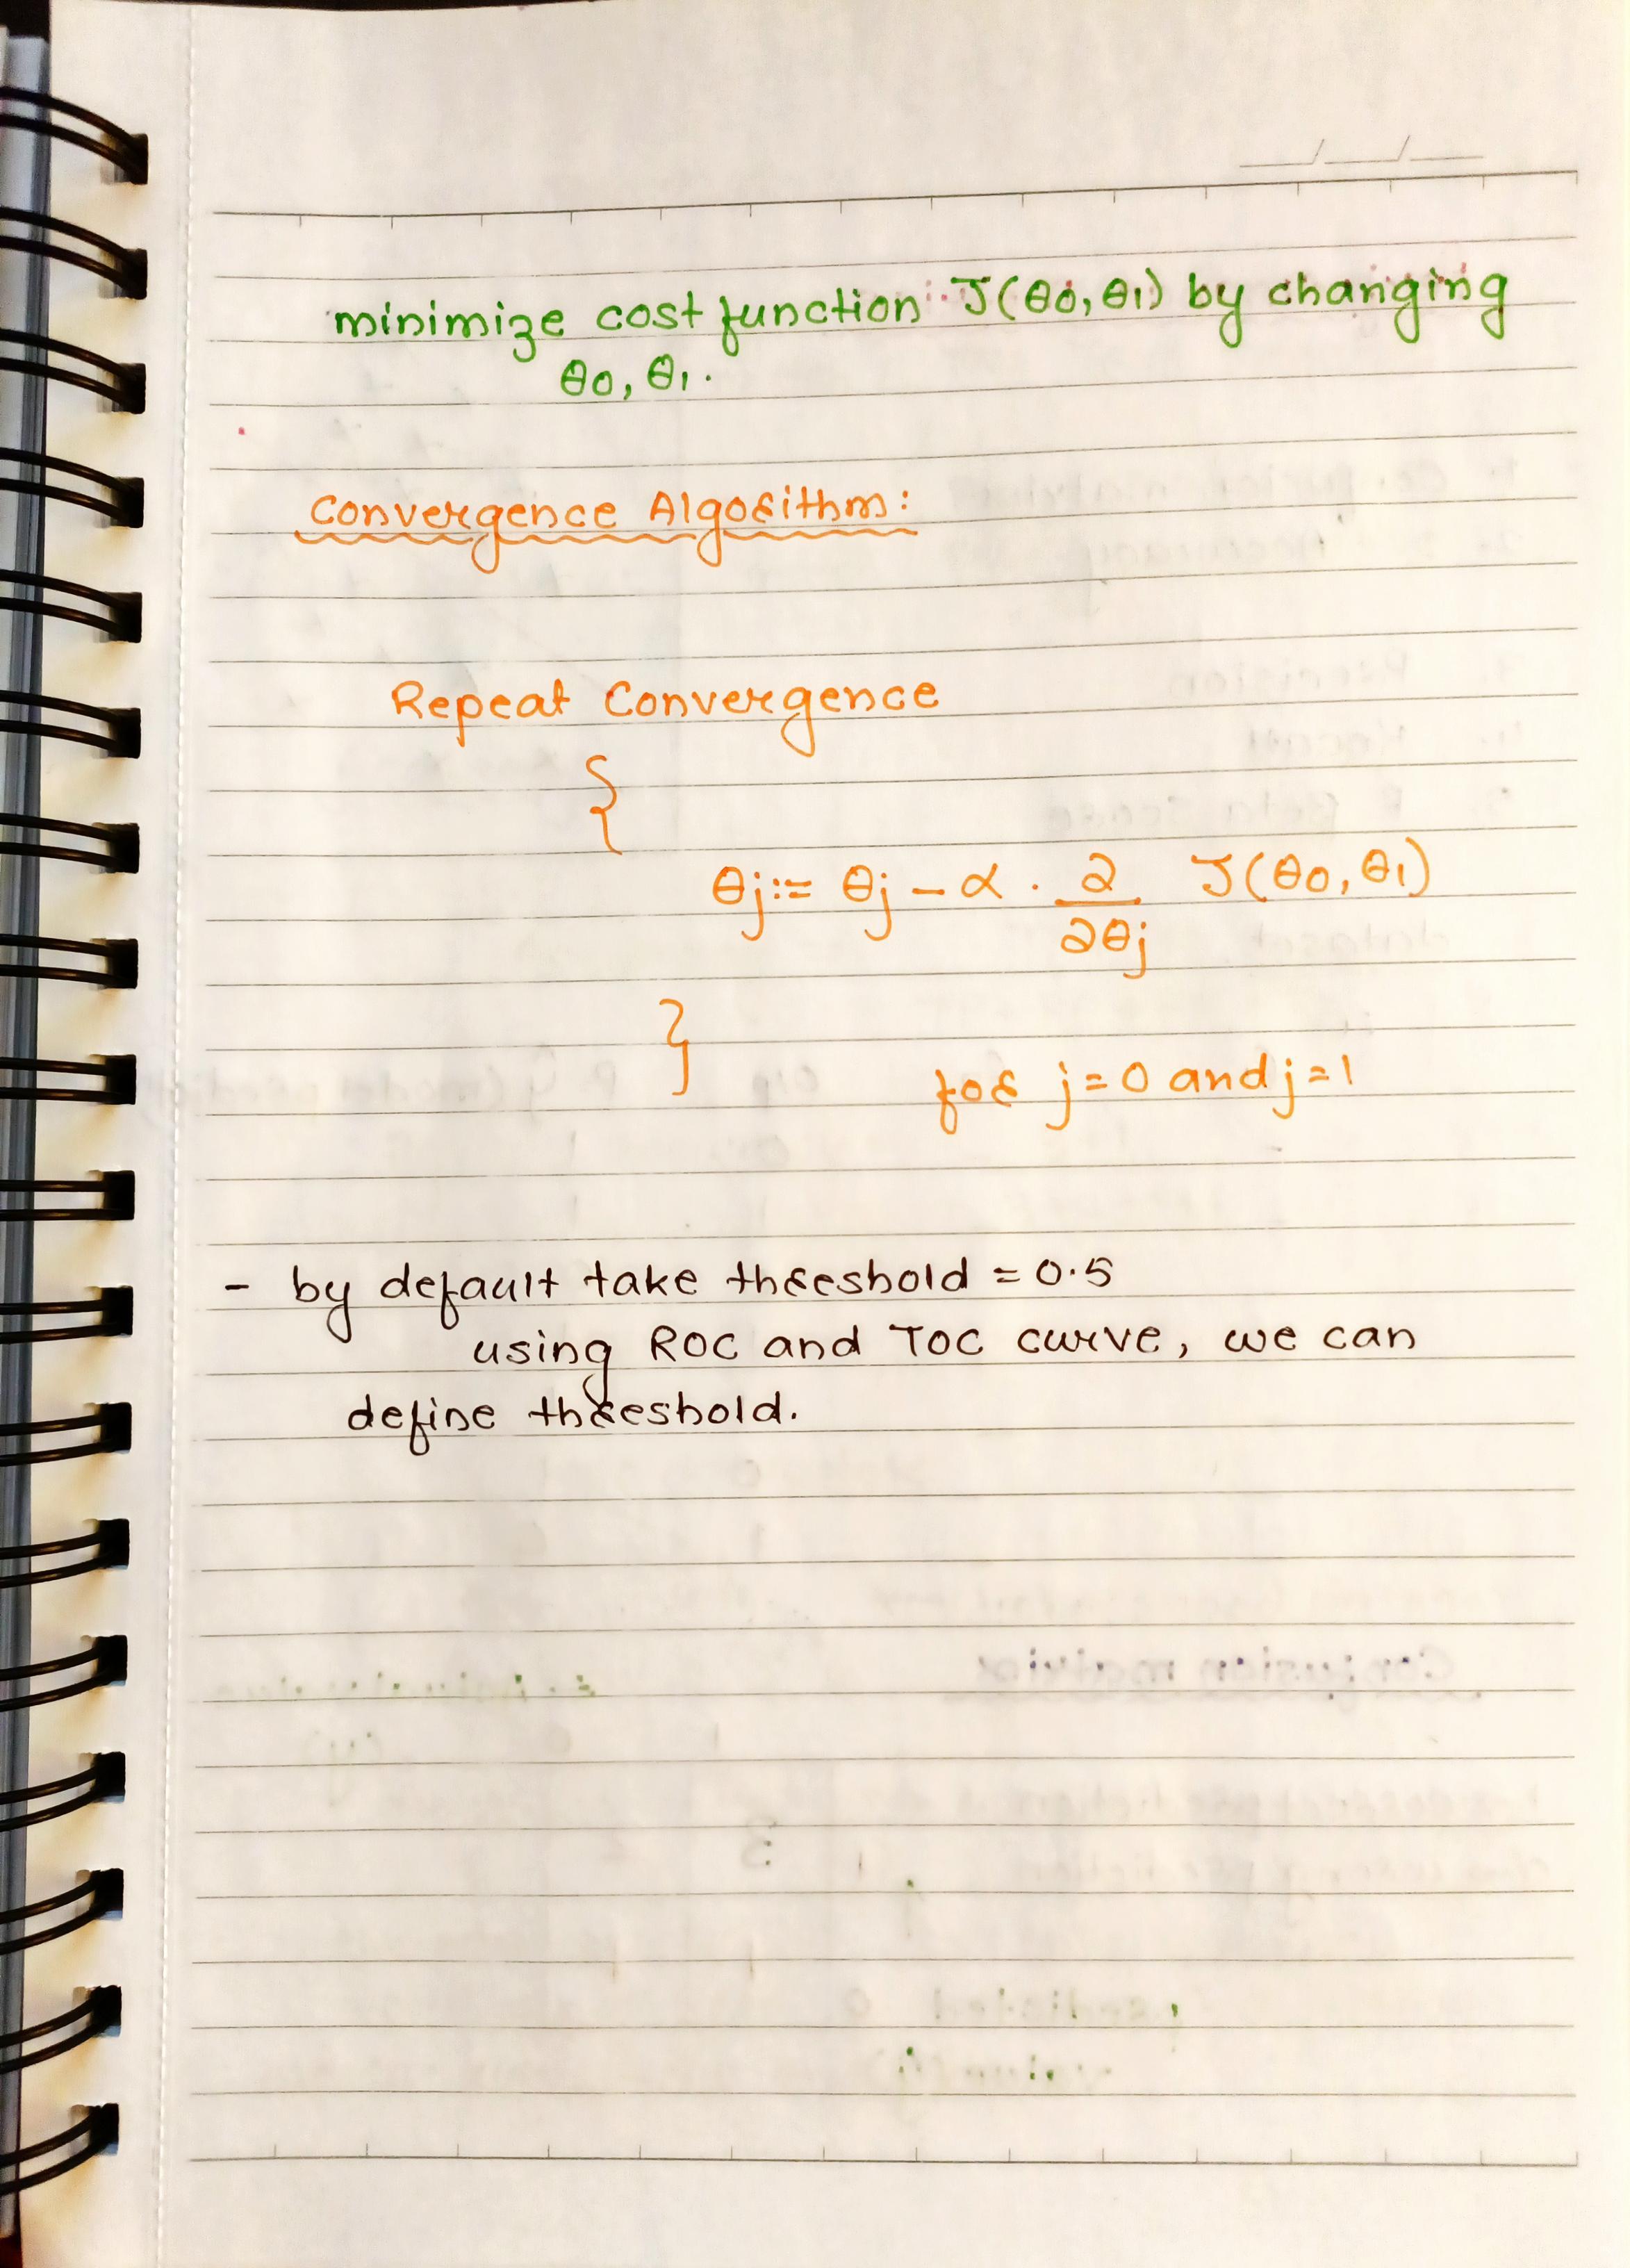 minimize cost function J(θ0, θ1) by changing
θ0, θ1.
Convergence Algorithm:
Repeat Convergence
{
θj := θj - α . ∂/∂θj J(θ0, θ1)
}
for j=0 and j=1
- by default take threshold = 0.5
using ROC and TOC curve, we can
define threshold.